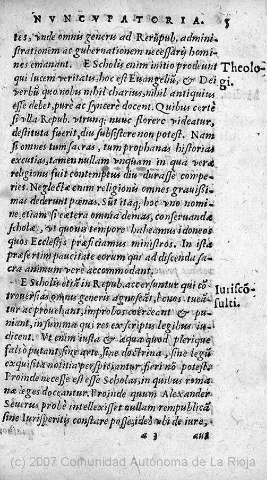 NVNCVPATORIA. 5
tes, vnde omnis generis ad Rerũpub. admini-
strationem ac gubernationem necessarij homi-
nes emanant. E Scholis enim initio prodeunt
qui lucem veritatis, hoc est Euangeliũ, & Dei
Theolo-
verbũ quo nobis nihil charius, nihil antiquius
gi.
esse debet, pure ac syncere docent. Quibus certè
si vlla Repub. vtcunq; nunc florere videatur,
destituta fuerit, diu subsistere non potest. Nam
si omnes tum sacras, tum prophanas historias
excutias, tamen nullam vnquam in qua veræ
religionis fuit contemptus diu durasse compe-
ries. Neglectæ enim religionis omnes grauissi-
mas dederunt pœnas. Sũt itaq; hoc vno nomi-
ne, etiam si cætera omnia demas, conseruandæ
scholæ, vt quouis tempore habeamus idoneos
quos Ecclesijs præficiamus ministros. In ista
præsertim paucitate eorum qui ad discenda sa-
cra animum verè accommodant.
E Scholis etiã in Repub. accersuntur qui cõ-
Iuriscõ-
trouersias omnis generis agnoscãt, bonos tueã-
sulti.
tur ac prouehant, improbos coerceant & pu-
niant, in summa qui res ex scriptis legibus iu-
dicent. Vt enim iusta & æqua quod plerique
falsò putant, sine arte, sine doctrina, sine legũ
exquisita notitia perspiciantur, fieri nõ potest.
Proinde necesse est esse Scholas, in quibus roma-
næ leges doceantur. Proinde quum Alexander
Seuerus probè intellexisset nullam rempublicã
sine Iurisperitis constare posse, ideo vbi de iure,
a 3
(c) 2007 Comunidad Autónoma de La Rioja